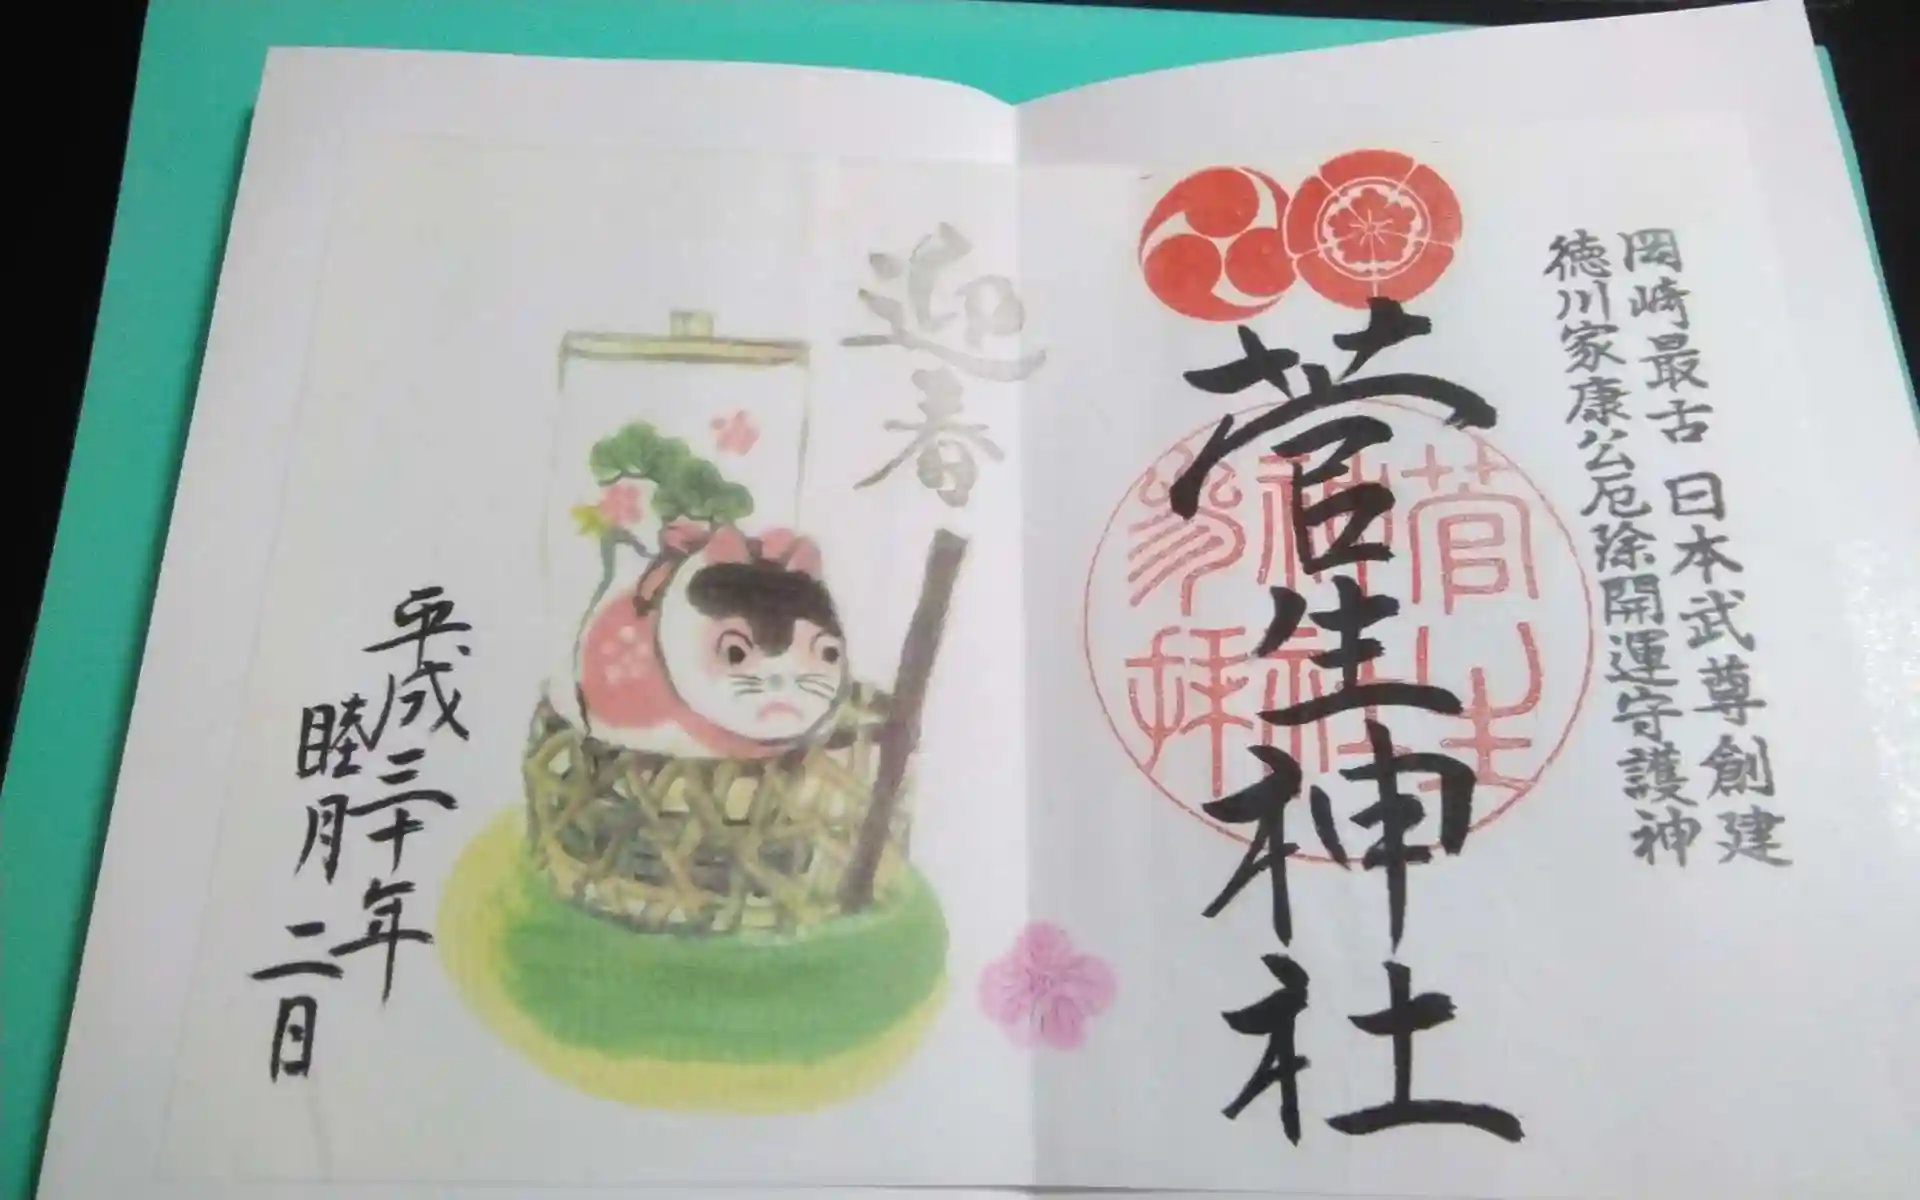 岡崎最古 日本武尊創建
徳川家康公厄除開運守護神
菅生神社
菅生
神社
参拝
迎春
平成三十年
睦月 二日